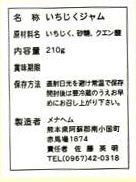 名 称 いちじくジャム
原材料名 いちじく、砂糖、クエン酸
内容量 210g
賞味期限
保存方法 直射日光を避け常温で保存
開封後は要冷蔵のうえお早
めにお召し上がり下さい。
製造者 メナヘム
熊本県阿蘇郡南小国町
赤馬場1874
責任者 佐藤英明
TEL(0967)42-0318